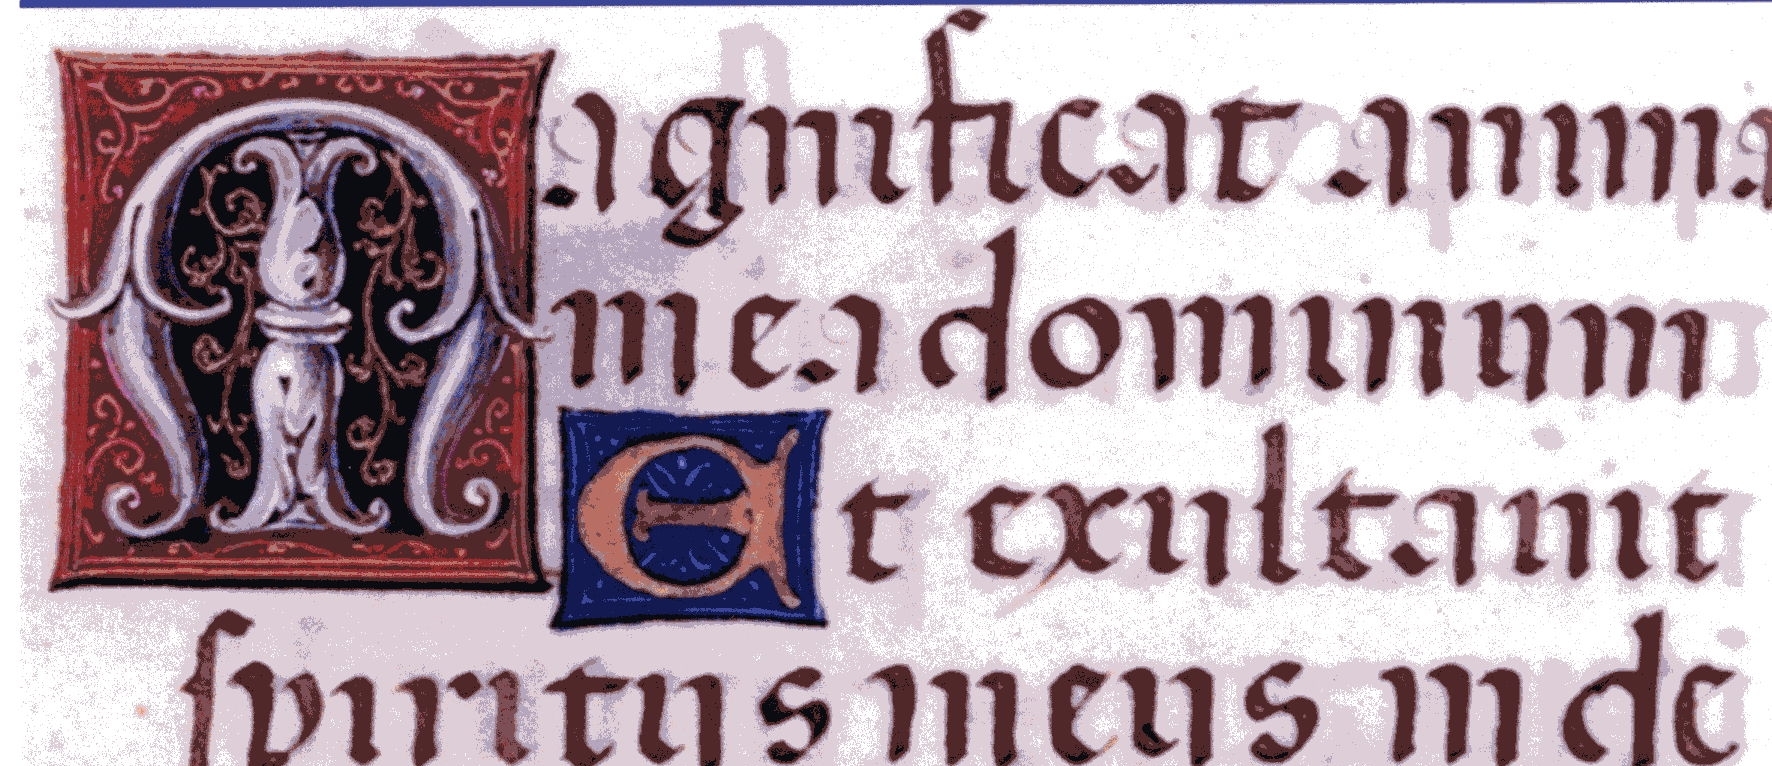 Magnificat anima
mea dominum
Et exultauit
spiritus meus in de